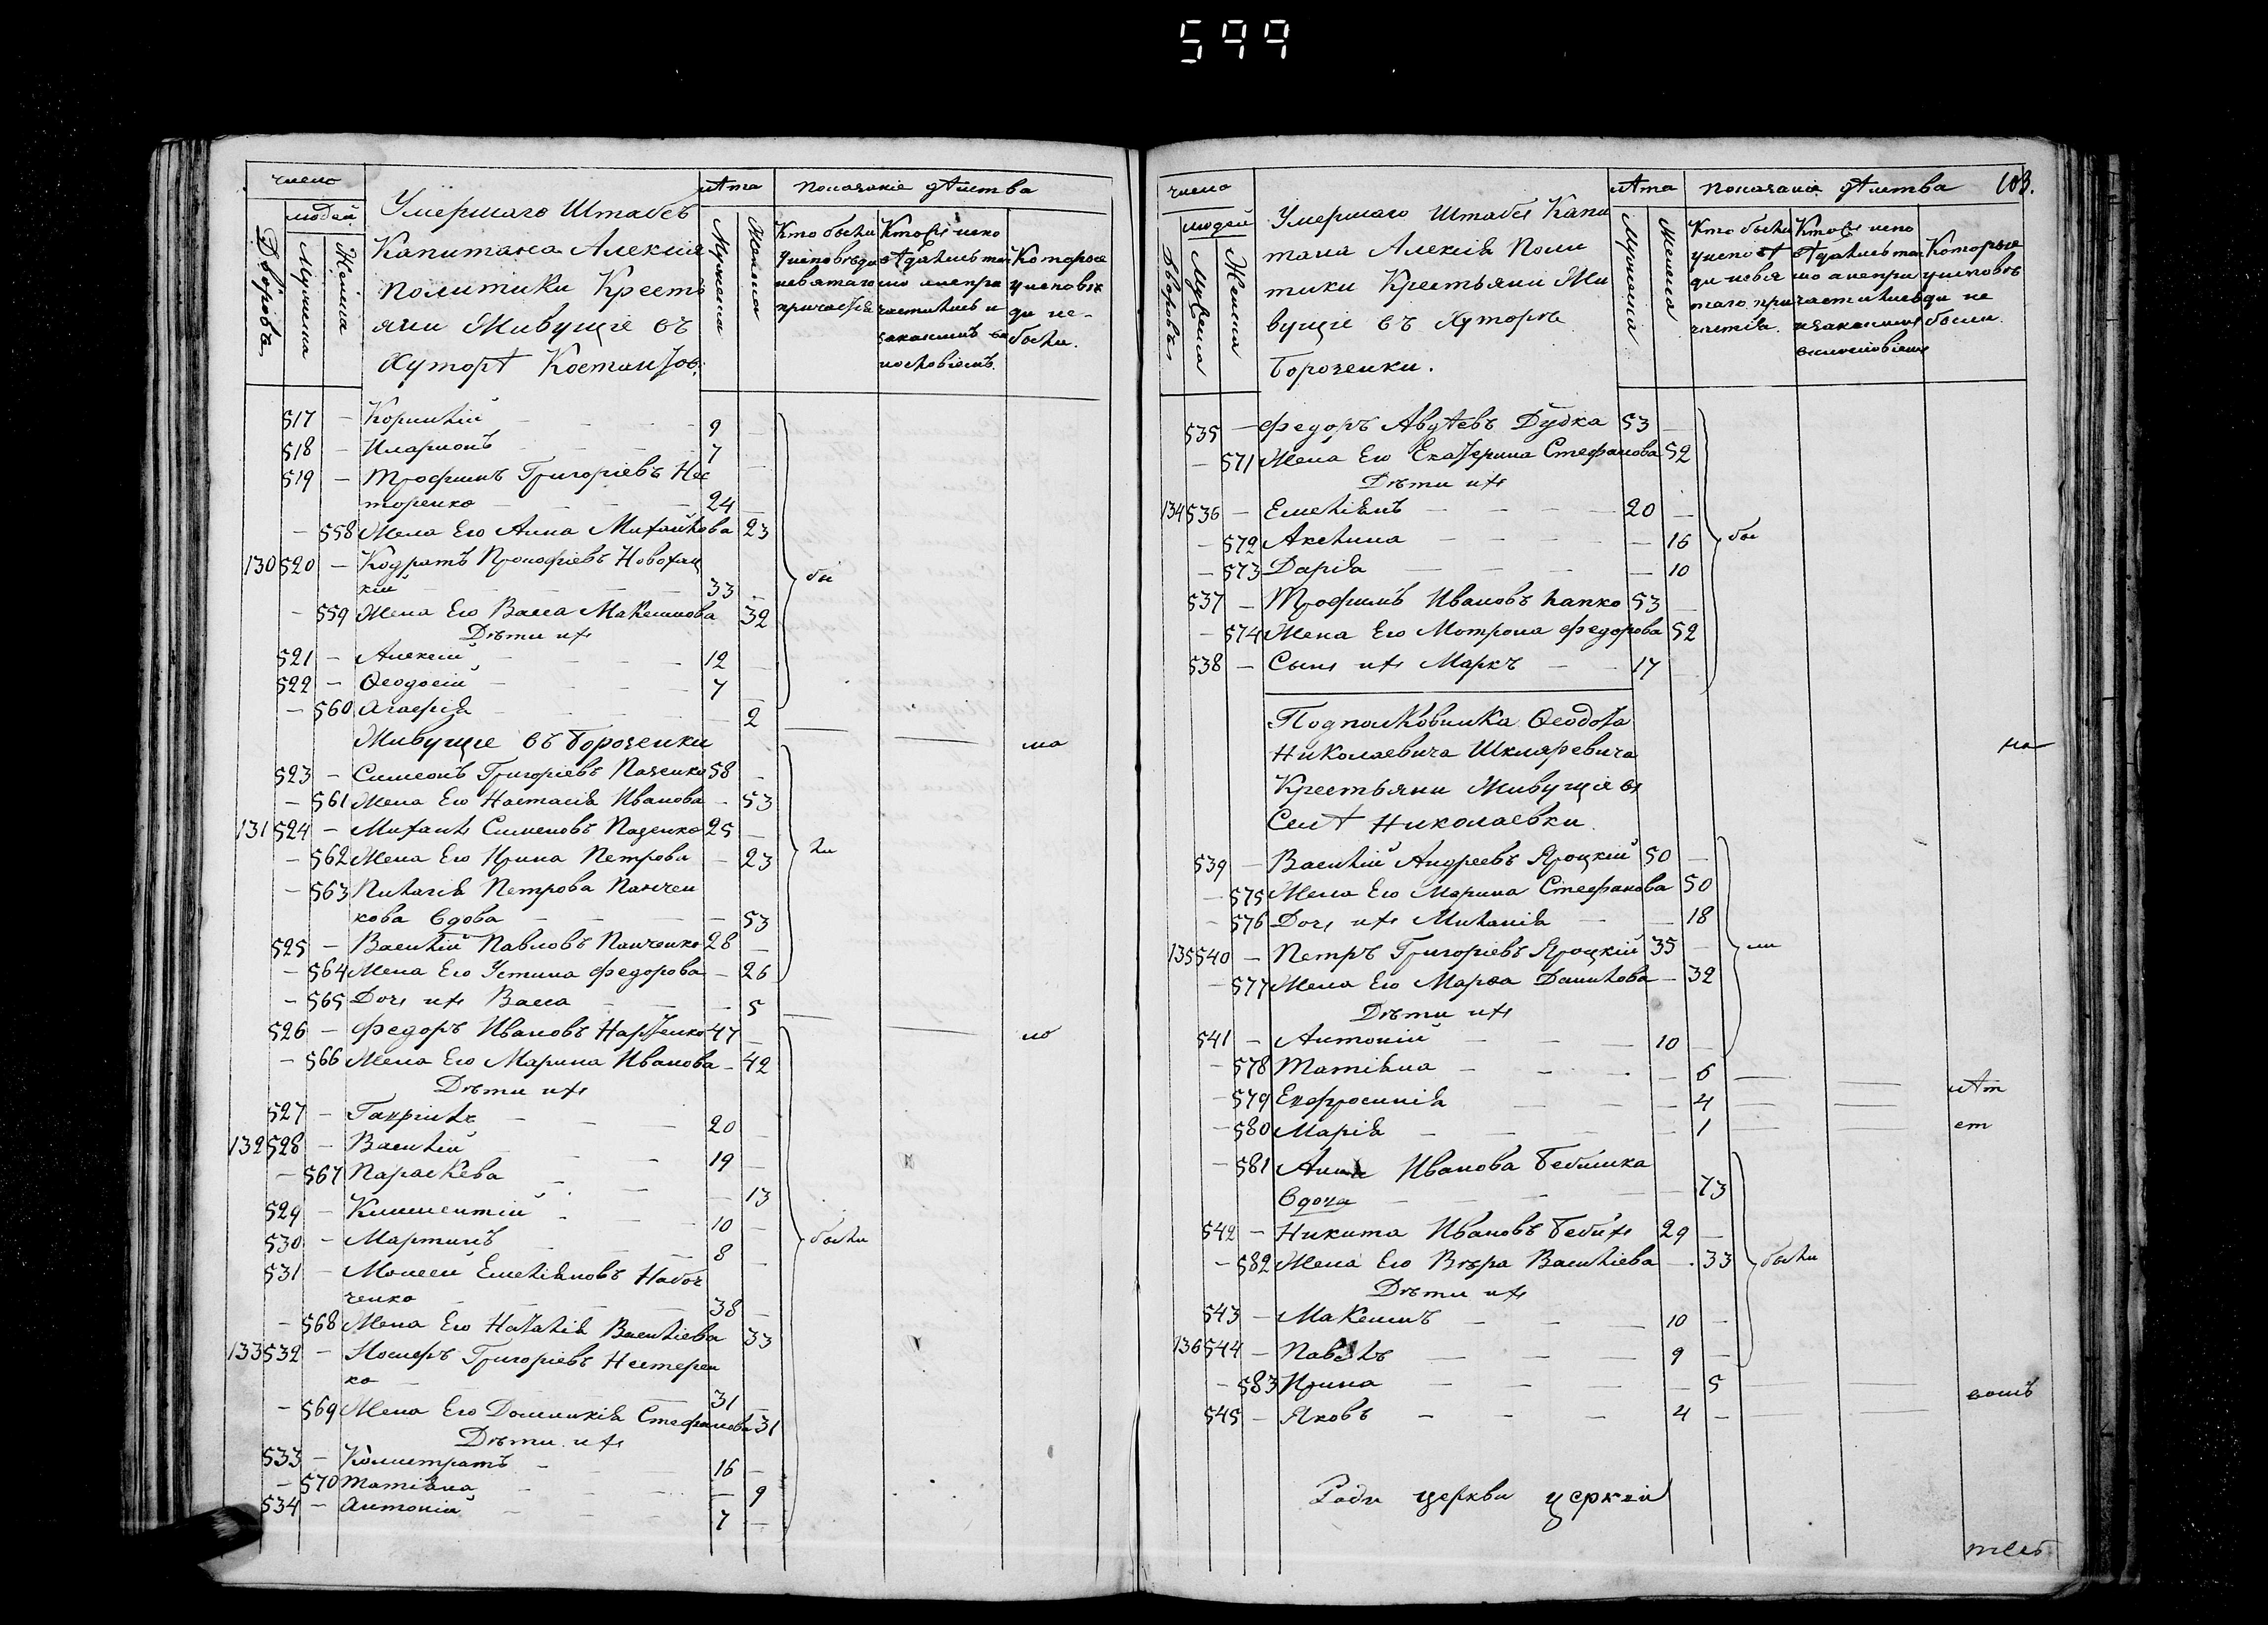 599
число
людей
Дворовъ
Мужеска
Женска
Умершаго Штабсъ
Капитана Алексія
Политики Кресть
яни Живущіе въ
Хуторѣ
лѣта
Мужеска
Женска
Показаніе дѣиства
Кто были
у исповѣди
и святаго
причастія
отдались
Которые
у исповѣ
ди не
были.
517 — Корнилій — 9
518 — Иларіонъ — 7
519 — Трофимъ Григоріевъ Нес
торенко — 24
— 558 Жена Его Анна Михайлова 23
130 520 — Кодратъ Прокофіевъ
кій — 33
— 559 Жена Его Васса Максимова 32
Дѣти ихъ
521 — Алексій — 12
522 — Ѳеодосій — 7
— 560 Агафія — 2
бы
Живущіе въ Борозенки
на
523 — Симеонъ Григоріевъ Пазенко 58
— 561 Жена Его Настасія Иванова — 53
131 524 — Михаилъ Сименовъ Пазенко 25
— 562 Жена Его Ирина Петрова — 23
— 563 Пилагія Петрова Панчен
кова Вдова — 53
525 — Василій Павловъ Панченко 28
— 564 Жена Его Устина Федорова — 26
— 565 Дочь ихъ Васса — 5
ли
но
526 — Федоръ Ивановъ 47
— 566 Жена Его Марина Иванова — 42
Дѣти ихъ
527 — Гавріилъ — 20
132 528 — Василій — 19
— 567 Параскева — 13
529 — Климентій — 10
530 — Мартинъ — 8
531 — Моисей Емеліяновъ Набоч
ченко — 38
— 568 Жена Его Наталія Василіева 33
133 532 — Іосифъ Григоріевъ Нестерен
ко — 31
— 569 Жена Его Домникія Стефанова 31
Дѣти ихъ
533 — 16
— 570 Татіяна — 9
534 — Антоній — 7
были
103.
число
людей
Дворовъ
Мужеска
Женска
Умершаго Штабсъ Капи
тана Алексія Поли
тики Крестьяни Жи
вущіе въ Хуторѣ
Борозенки.
лѣта
Мужеска
Женска
Показаніе дѣиства
Кто были
у исповѣ
ди и свя
таго при
частія.
отдались
Которые
у исповѣ
ди не
были.
535 — Федоръ Авдѣевъ Дудка 53 —
— 571 Жена Его Екатерина Стефанова 52
Дѣти ихъ
134 536 — Емеліянъ — 20 —
— 572 Акелина — 16
— 573 Дарія — 10
537 — Трофимъ Ивановъ Цапко 53
— 574 Жена Его Мотрона Федорова 52
538 — Сынъ ихъ Маркъ — 17
бы
Подполковника Ѳеодота
Николаевича Шкляревича
Крестьяни Живущія въ
Селѣ Николаевки
на
539 — Василій Андреевъ Яроцкій 50 —
— 575 Жена Его Марина Стефанова 50
— 576 Дочь ихъ Миланія — 18
135 540 — Петръ Григоріевъ Яроцкій 35 —
— 577 Жена Его Марѳа Данилова — 32
Дѣти ихъ
541 — Антоній — 10 —
ли
— 578 Татіяна — 6
— 579 Ефросинія — 4
— 580 Марія — 1
лѣт
ст
— 581 Анна Иванова
Вдова — 73
542 — Никита Ивановъ 29 —
— 582 Жена Его Вѣра Василіева — 33
Дѣти ихъ
543 — Максимъ — 10 —
136 544 — Павелъ — 9 —
— 583 Ирина — 5
545 — Яковъ — 4 —
были
вомъ